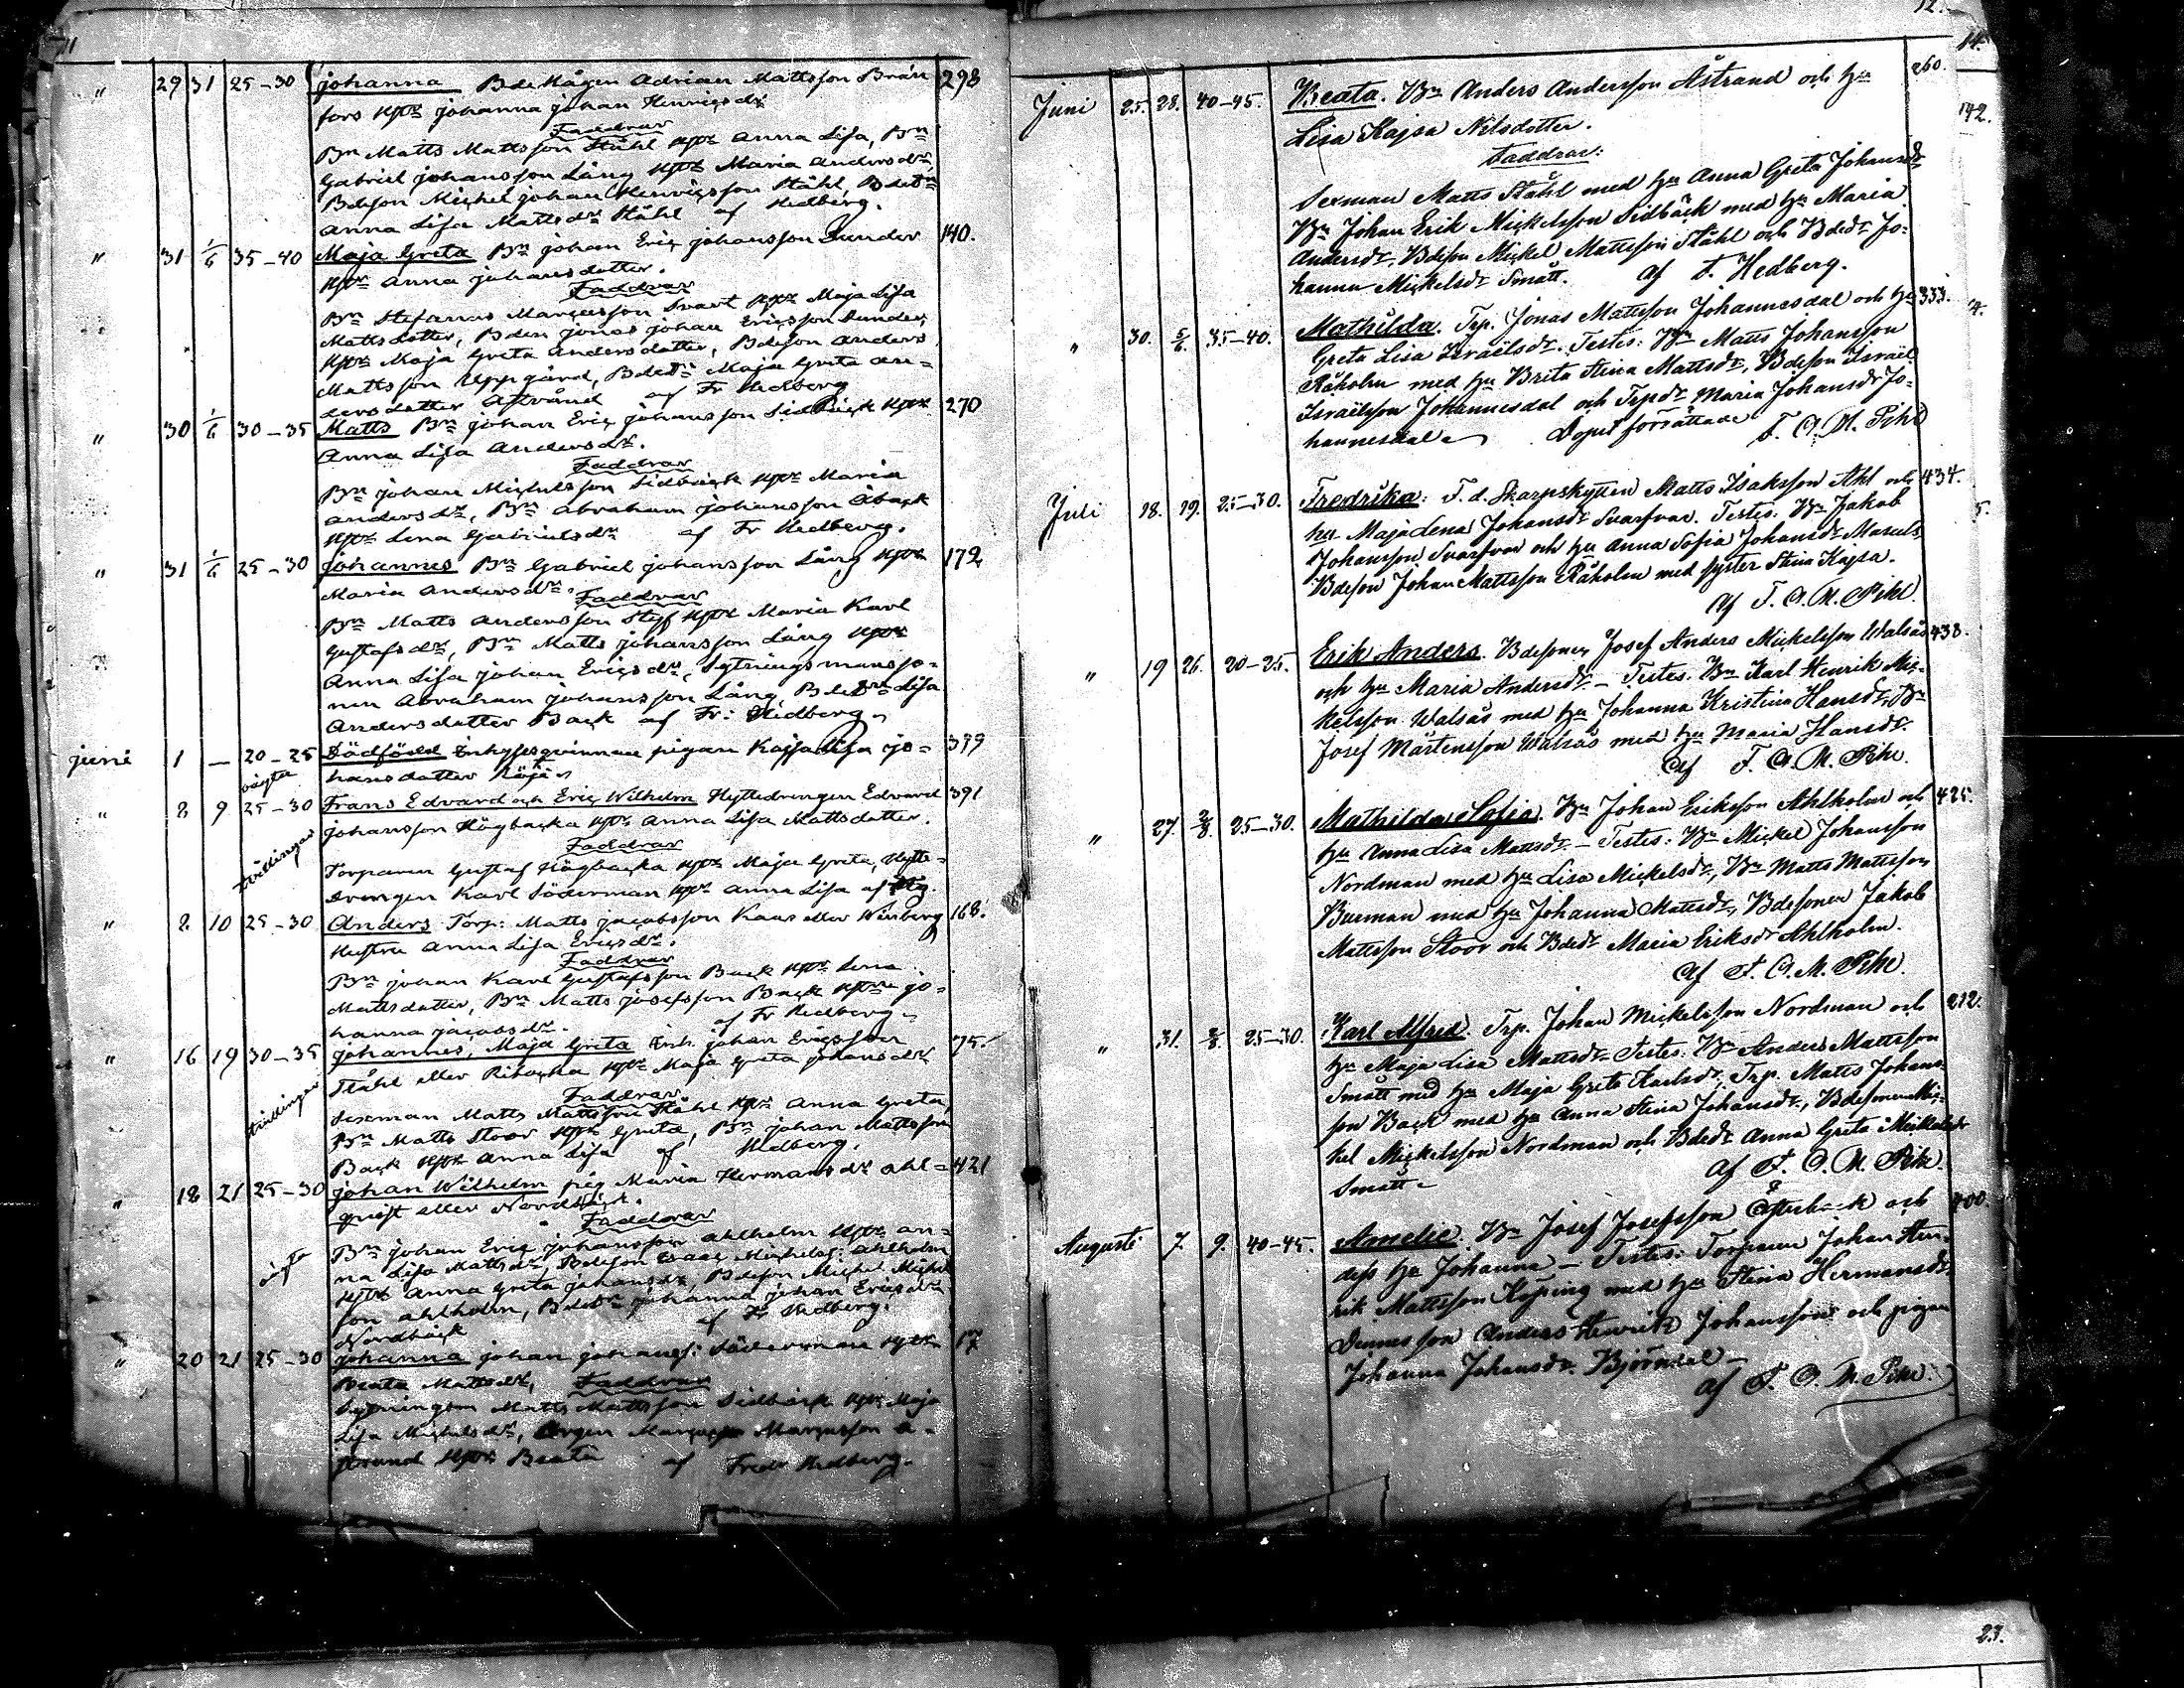 11
" 29 31 25-30 Johanna Bde Mågen Adrian Mattsson Brän 298
fors Hstr Johanna Johan Henricsdr
Faddrar
Bn Matts Mattsson Ståhl Hstr Anna Lisa, Bn
Gabriel Johansson Lång Hstr Maria Andersdr
Bdeson Michel Johan Henricsson Ståhl, Bdedr
Anna Lisa Mattsdr Ståhl af Hedberg.
" 31 1/6 35-40 Maja Greta Bn Johan Eric Johansson Sunder 140.
Hstr Anna Johansdotter.
Faddrar
Bn Stefanus Marcusson Svart Hstr Maja Lisa
Mattsdotter, Bden Jonas Johan Ericsson Sunder,
Hstr Maja Greta Andersdotter, Bdeson Anders
Mattsson Uppgård, Bdedr Maja Greta An=
dersdotter Åstrand af Fr Hedberg
" 30 1/6 30-35 Matts Bn Johan Eric Johansson Sidbäck Hstr 270
Anna Lisa Andersdr.
Faddrar
Bn Johan Michelsson Sidbäck Hstr Maria
Andersdr, Bn Abraham Johansson Åback
Hstr Lena Gabrielsdr af Fr Hedberg.
" 31 1/6 25-30 Johannes Bn Gabriel Johansson Lång Hstr 172
Maria Andersdr. Faddrar
Bn Matts Andersson Styf Hstr Maria Karl
Gustafsdr, Bn Matts Johansson Lång Hstr
Anna Lisa Johan Ericsdr, Sytningsmansso=
nen Abraham Johansson Lång Bdedr Lisa
Andersdotter Back af Fr: Hedberg.
juni 1 — 20-25 Dödfödd Inhysesqvinnan pigan Kajsa Lisa Jo= 379
oägta hansdotter
" 8 9 25-30 Frans Edvard och Eric Wilhelm Hyttedrengen Edvard 391
tvillingar Johansson Högbacka Hstr Anna Lisa Mattsdotter.
Faddrar
Torparen Gustaf Högbacka Hstr Maja Greta, Hytte=
drengen Karl Söderman Hstr Anna Lisa af
" 8 10 25-30 Anders Torp: Matts Jacobsson Kaas eller Winberg 168.
Hustru Anna Lisa Ericsdr.
Faddrar
Bn Johan Karl Gustafsson Back Hstr Lena
Mattsdotter, Bn Matts Josefsson Back Hstru Jo=
hanna Jacobsdr. af Fr Hedberg.
" 16 19 30-35 Johannes, Maja Greta Inh. Johan Ericsson 75.
tvillingar Ståhl eller Ribacka Hstr Maja Greta Johansdr
Faddrar
Sexman Matts Mattsson Ståhl Hstr Anna Greta,
Bn Matts Stoor Hstr Greta, Bn Johan Mattsson
Back Hstr Anna Lisa af Hedberg.
" 18 21 25-30 Johan Wilhelm pig Maria Hermansdr Ahl= 421
qvist eller Nordbäck.
Faddrar
oägta Bn Johan Eric Johansson Ahlholm Hstr An=
na Lisa Mattsdr, Bdeson Isaac Michelss: Ahlholm
Hstr Anna Greta Johansdr, Bdeson Michel Michel
son Ahlholm, Bdedr Johanna Johan Ericsdr
Nordbäck af Fr Hedberg.
" 20 21 25-30 Johanna Johan Johanss: Söderman Hstr 17
Beata Mattsdr, Faddrar
Sytningsm Matts Mattsson Sidbäck Hstr Maja
Lisa Michelsdr, Marcusson Å=
strand Hstr Beata af Fredr Hedberg.
12.
Juni 25. 28. 40-45. Beata. Bn Anders Andersson Åstrand och hu 260.
Lisa Kajsa Nilsdotter.
Faddrar:
Sexman Matts Ståhl med hu Anna Greta Johansdr
Bn Johan Erik Mickelsson Sidbäck med hu Maria
Andersdr, Bdeson Mickel Mattsson Ståhl och Bdedr Jo=
hanna Mickelsdr Smått. af F. Hedberg.
" 30. 5/6. 35-40. Mathilda. Trp. Jonas Mattsson Johannesdal och hu 333.
Greta Lisa Israëlsdr. Testes: Bn Matts Johansson
Råholm med hu Brita Stina Mattsdr, Bdeson Israël
Israëlsson Johannesdal och Trpdr Maria Johansdr Jo=
hannesdal. Dopet förrättade F. O. M. Pihl
Juli 18. 19. 25-30. Fredrika. F.d. Skarpskytten Matts Isaksson Ahl och 434.
hu Maja Lena Johansdr Svarfvar. Testes. Bn Jakob
Johansson Svarfvar och hu Anna Sofia Johansdr
Bdeson Johan Mattsson Råholm med syster Stina Kajsa.
af F. O. M. Pihl.
" 19 26. 20-25. Erik Anders. Bdesonen Josef Anders Mickelsson Walsås 438.
och hu Maria Andersdr. - Testes. Bn Karl Henrik Mic=
kelsson Walsås med hu Johanna Kristina Hansdr, Bn
Josef Mårtensson Walsås med hu Maria Hansdr.
af F. O. M. Pihl.
" 27. 2/8. 25-30. Mathilda Sofia. Bn Johan Eriksson Ahlholm och 425.
hu Anna Lisa Mattsdr. - Testes: Bn Mickel Johansson
Nordman med hu Lisa Mickelsdr, Bn Matts Mattsson
Buerman med hu Johanna Mattsdr, Bdesonen Jakob
Mattsson Stoor och Bdedr Maria Eriksdr Ahlholm.
af F. O. M. Pihl.
" 31. 3/8. 25-30. Karl Alfred. Trp. Johan Mickelsson Nordman och 212.
hu Maja Lisa Mattsdr - Testes. Bn Anders Mattsson
Smått med hu Maja Greta Karlsdr, Trp. Matts Johans
son Back med hu Anna Stina Johansdr, Bdesonen Mic=
kel Mickelsson Nordman och Bdedr Anna Greta Mickelsdr
Smått. af F. O. M. Pihl.
Augusti 7. 9. 40-45. Amelie. Bn Josef Josefsson och 400.
dess hu Johanna - Testes: Torparen Johan Hen=
rik Mattsson Köping med hu Stina Hermansdr.
Anders Henrik Johansson och pigan
Johanna Johansdr. Björndal -
af F. O. M. Pihl.
14.
142.
23.